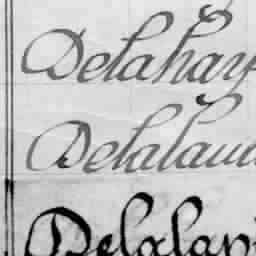 Delahay
Delalau
Delalan